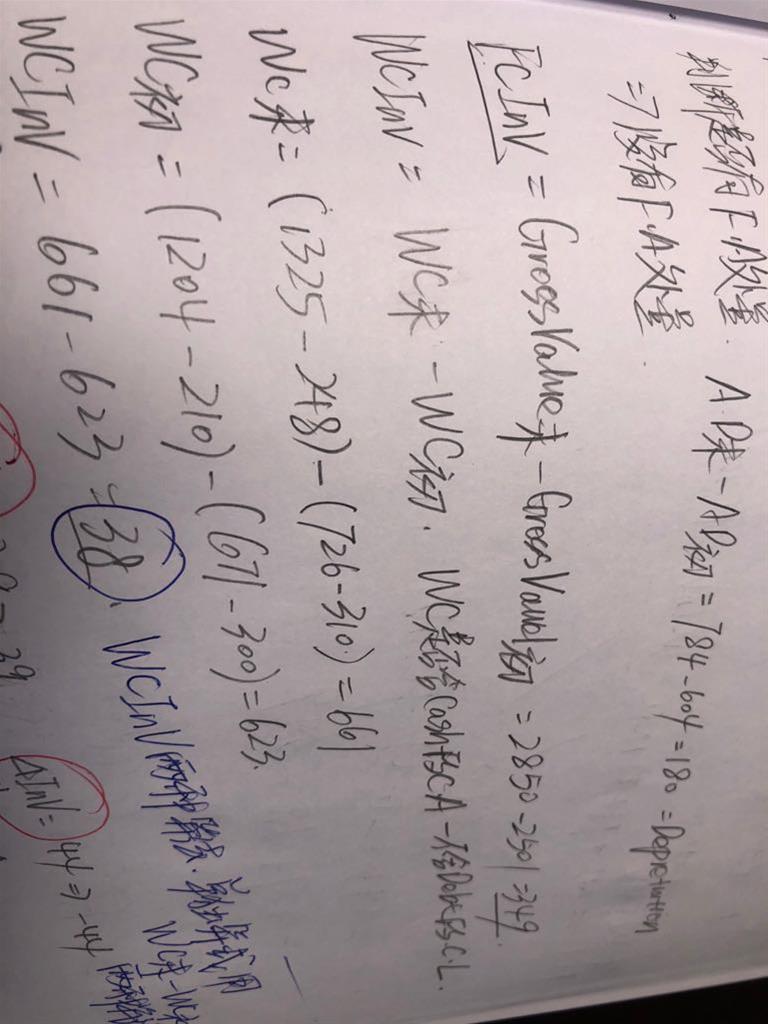 判断是否有F.A处置. A.D末-AD初=784-604=180=Depreciation
=>没有F.A处置.
FCInV = Gross Value末 - Gross Value初 = 2850-2501=349
WCInV = WC末 - WC初. WC是不含Cash的CA-不含Debt的C.L.
WC末 = (1325-248)-(726-310)=661
WC初 = (1204-210)-(671-300)=623.
WCInV = 661-623=38. WCInV两种算法.
WC末-WC
ΔInV= 44=>-44
39